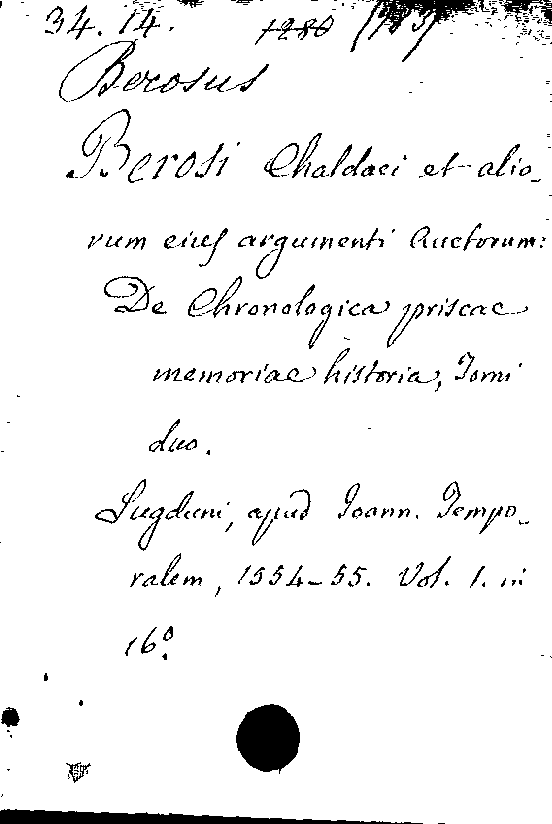 34. 14. 1280 (183)
Berosus
Berosi Chaldaei et alio-
rum eius argumenti Auctorum:
De Chronologica priscae
memoriae historia, Tomi
duo.
Lugduni, apud Joann. Tempo-
ralem, 1554-55. Vol. 1. in
16º.